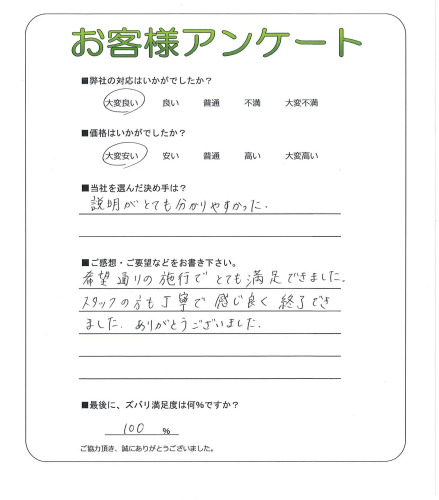 お客様アンケート
■弊社の対応はいかがでしたか?
大変良い 良い 普通 不満 大変不満
■価格はいかがでしたか?
大変安い 安い 普通 高い 大変高い
■当社を選んだ決め手は?
説明がとても分かりやすかった.
■ご感想・ご要望などをお書き下さい。
希望通りの施行でとても満足できました.
スタッフの方も丁寧で感じ良く終了でき
ました.ありがとうございました.
■最後に、ズバリ満足度は何%ですか?
100 %
ご協力頂き、誠にありがとうございました。